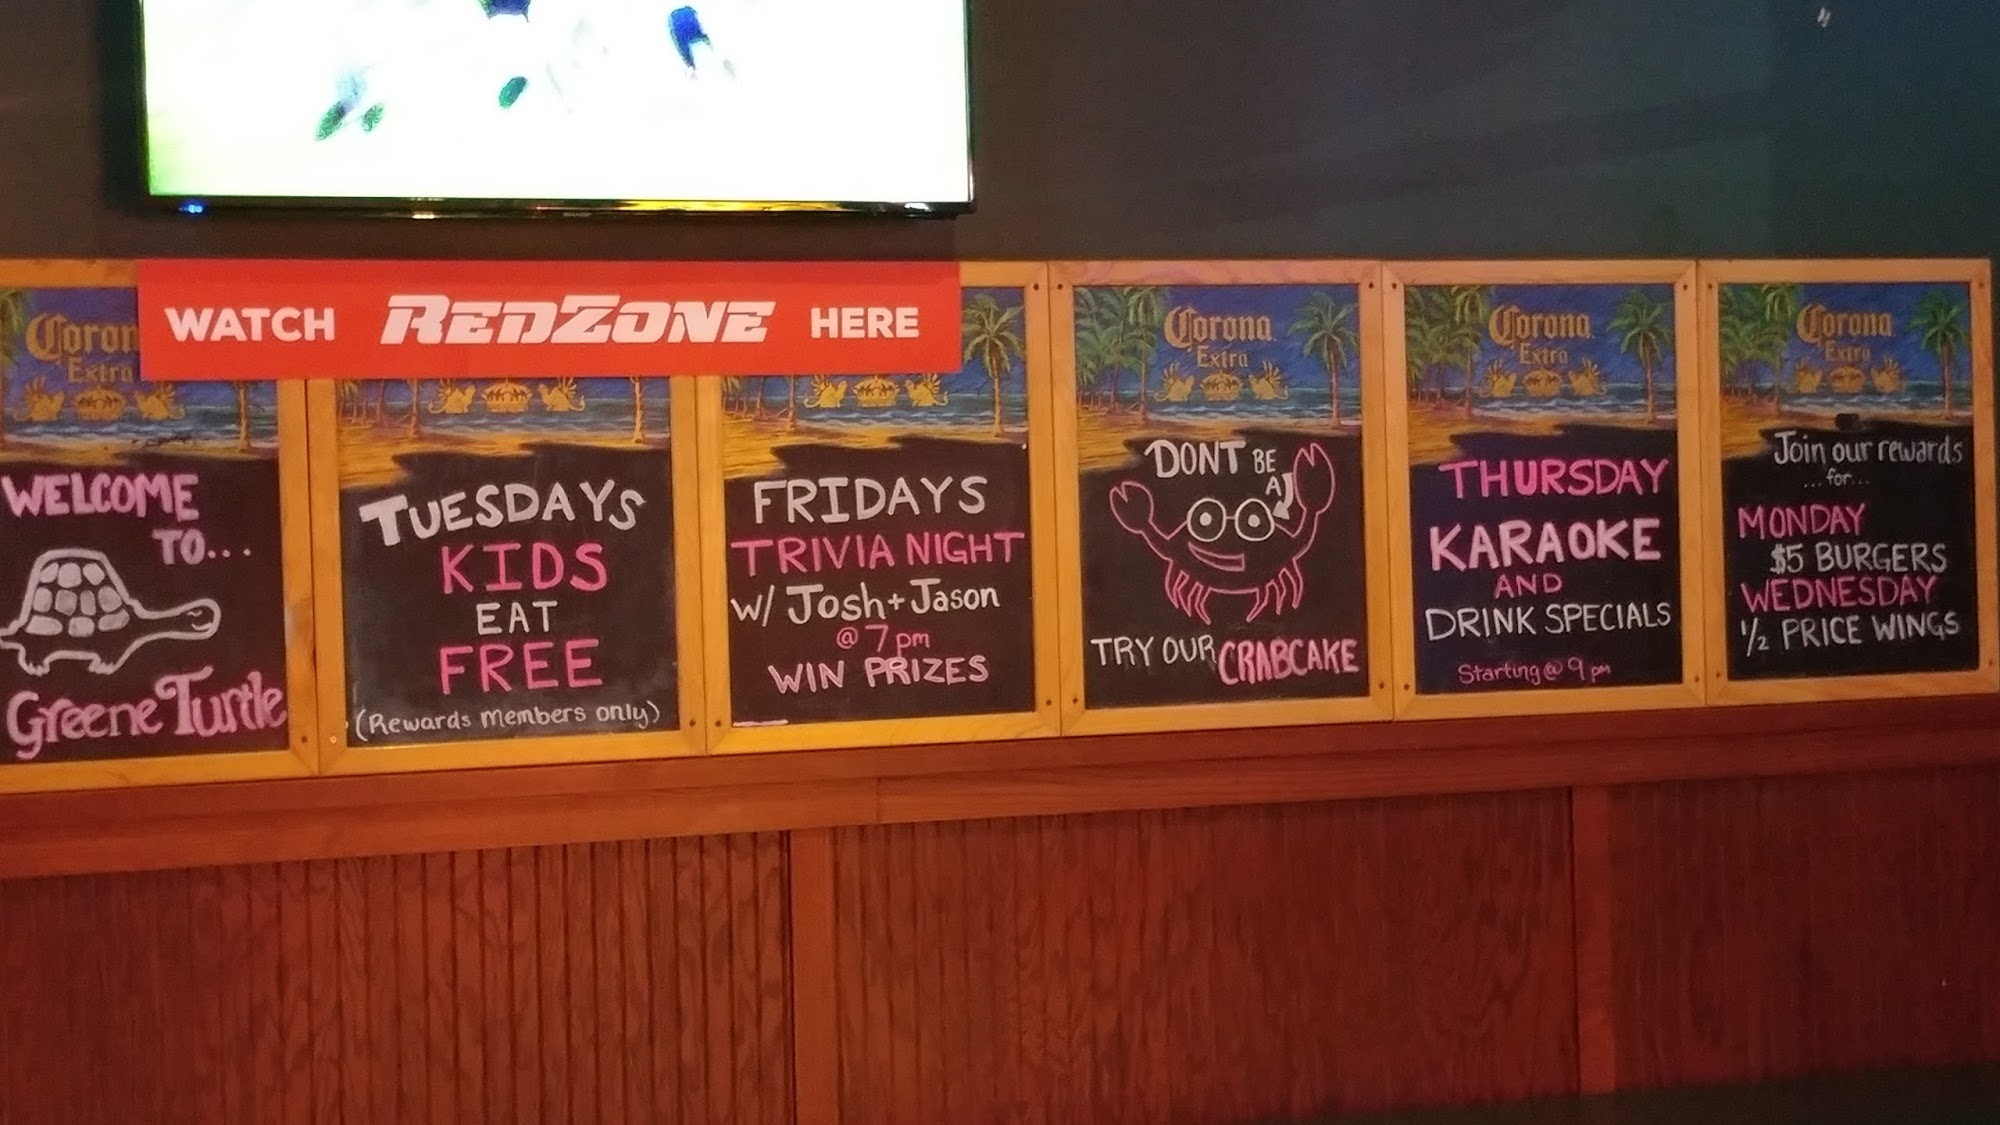 WATCH REDZONE HERE
Coron
Extra
WELCOME
TO...
Greene Turtle
TUESDAYS
KIDS
EAT
FREE
(Rewards members only)
FRIDAYS
TRIVIA NIGHT
W/ Josh + Jason
@ 7 pm
WIN PRIZES
Corona
Extra
DONT BE
A
TRY OUR CRABCAKE
Corona
Extra
THURSDAY
KARAOKE
AND
DRINK SPECIALS
Starting @ 9 pm
Corona
Extra
Join our rewards
...for...
MONDAY
$5 BURGERS
WEDNESDAY
1/2 PRICE WINGS